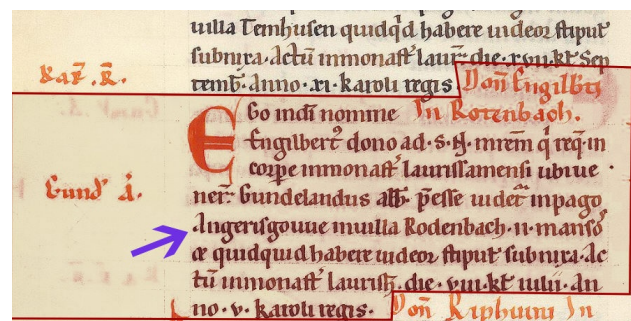 uilla Temhusen quidqd habere uideor stiput
subnixa. Actū inmonast laur. die. xvii. kt Sep
temb. Anno. xi. karoli regis. Don Engilbti
& at. R.
In Rotenbach.
Ego indi nomine
Engilbert dono ad. s. N. mrem q req. in
corpe inmonast laurissamensi ubi ue
Gund A.
ner. Gundelandus abb. p̄esse uidet inpago
Angerisgouue inuilla Rodenbach. ii. manso
& quidquid habere uideor stiput subnixa. Ac
tū inmonast laurish. die. viii. kt iulii. An
no. v. karoli regis. Don Riphuini In